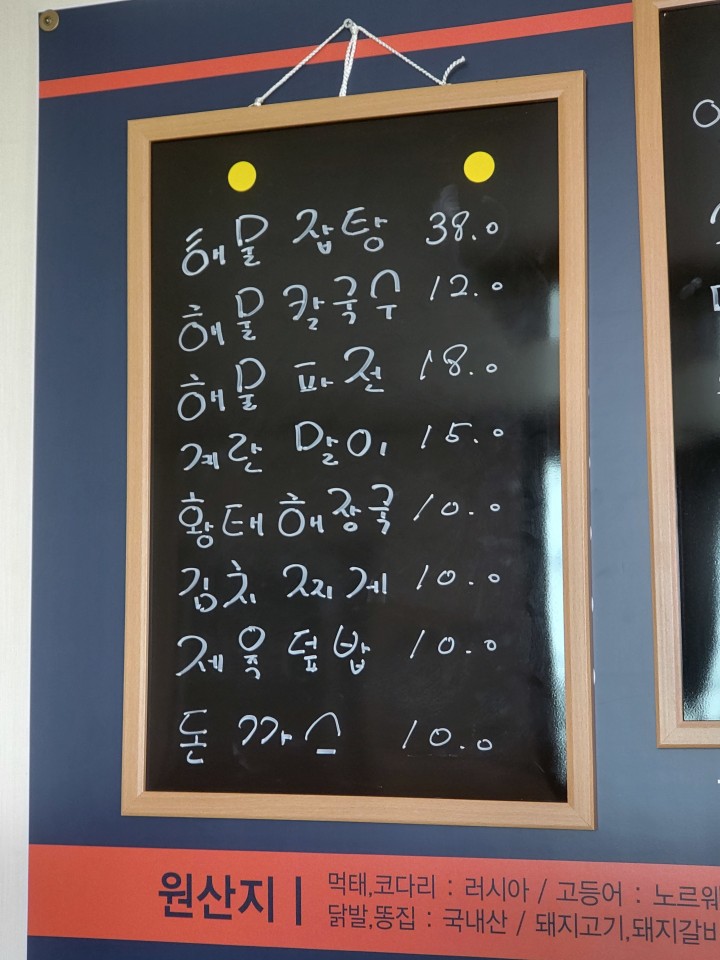 해물 잡탕 38.0
해물 칼국수 12.0
해물 파전 18.0
계란 말이 15.0
황태 해장국 10.0
김치 찌게 10.0
제육 덮밥 10.0
돈 까스 10.0
원산지 |
먹태,코다리 : 러시아 / 고등어 : 노르웨
닭발,똥집 : 국내산 / 돼지고기,돼지갈비